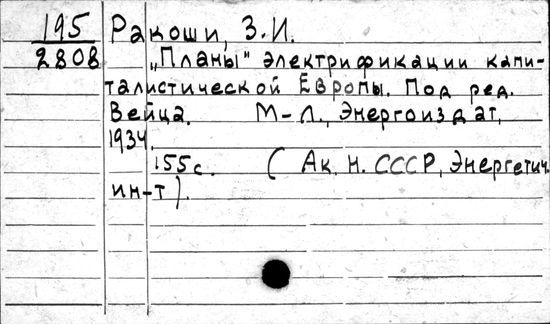 195 Ракоши, З.И.
2808 „Планы" электрификации капи-
талистической Европы. Под ред.
Вейца. М-Л., Энергоиздат,
1934.
155с. (Ак. Н. СССР, Энергетич.
ин-т).